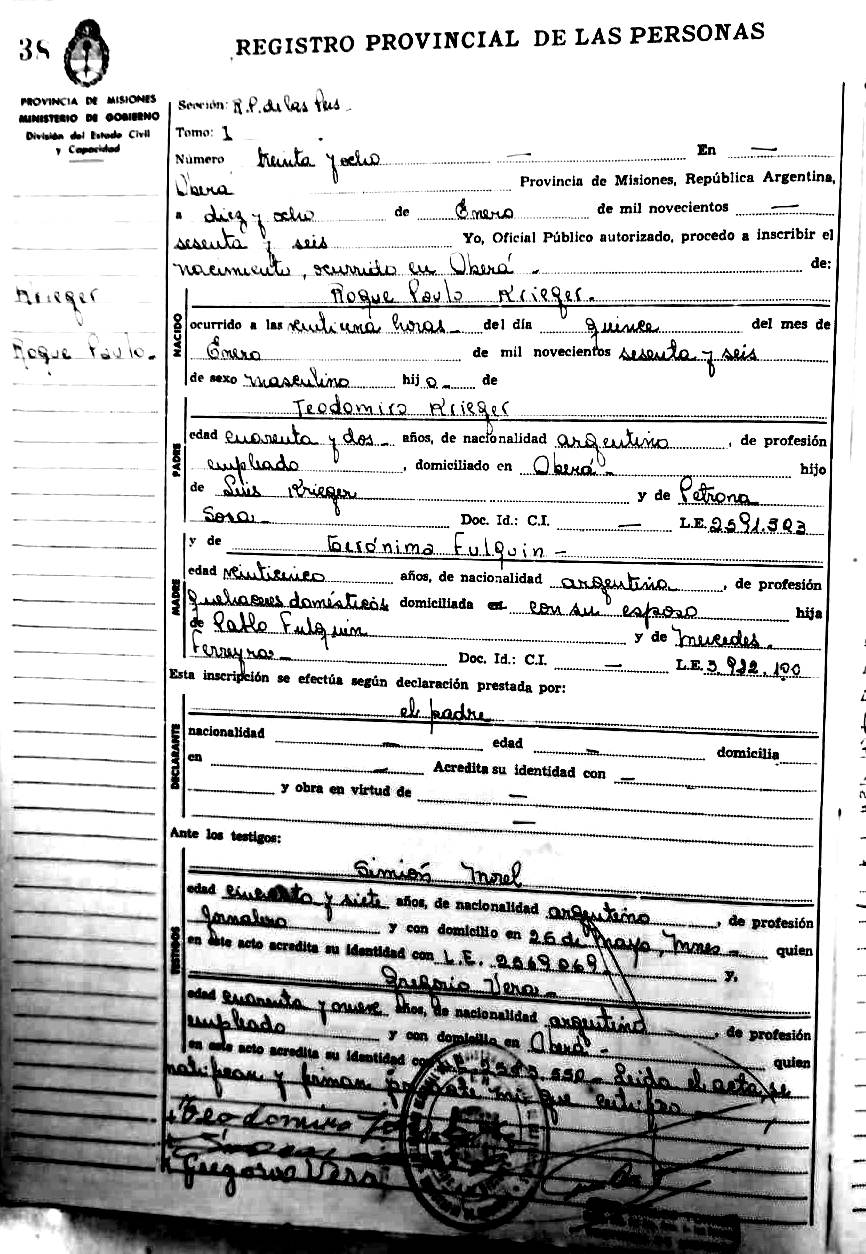 38
REGISTRO PROVINCIAL DE LAS PERSONAS
PROVINCIA DE MISIONES
MINISTERIO DE GOBIERNO
División del Estado Civil
y Capacidad
Krieger
Roque Paulo.
Sección: R.P. de las Pers.
Tomo: 1
Número treinta y ocho — En —
Oberá Provincia de Misiones, República Argentina,
a diez y ocho de Enero de mil novecientos —
sesenta y seis Yo, Oficial Público autorizado, procedo a inscribir el
nacimiento, ocurrido en Oberá - de:
NACIDO
Roque Paulo Krieger.
ocurrido a las veintiuna horas - del día quince del mes de
Enero de mil novecientos sesenta y seis
de sexo masculino hijo - de
PADRE
Teodomiro Krieger
edad cuarenta y dos - años, de nacionalidad argentino, de profesión
empleado, domiciliado en Oberá - hijo
de Luis Krieger y de Petrona
Sosa - Doc. Id.: C.I. — L.E. 2591.503
MADRE
y de Gerónima Fulquin -
edad veinticinco años, de nacionalidad argentina, de profesión
quehaceres domésticos domiciliada en con su esposo hija
de Pablo Fulquin y de Mercedes
Ferreyra - Doc. Id.: C.I. — L.E. 3.922.190
Esta inscripción se efectúa según declaración prestada por:
DECLARANTE
el padre
nacionalidad — edad — domicilia
en — Acredita su identidad con —
y obra en virtud de —
—
Ante los testigos:
TESTIGOS
Simión Morel
edad cincuenta y siete años, de nacionalidad argentino, de profesión
Jornalero y con domicilio en 25 de Mayo, Mnes - quien
en este acto acredita su identidad con L.E. 2569069 - y,
Gregorio Vera -
edad cuarenta y nueve años, de nacionalidad argentino, de profesión
empleado y con domicilio en Oberá - quien
en este acto acredita su identidad con 550 - Leída el acta, se
ratifican y firman por ante mí que certifico
Teodomiro
Gregorio Vera